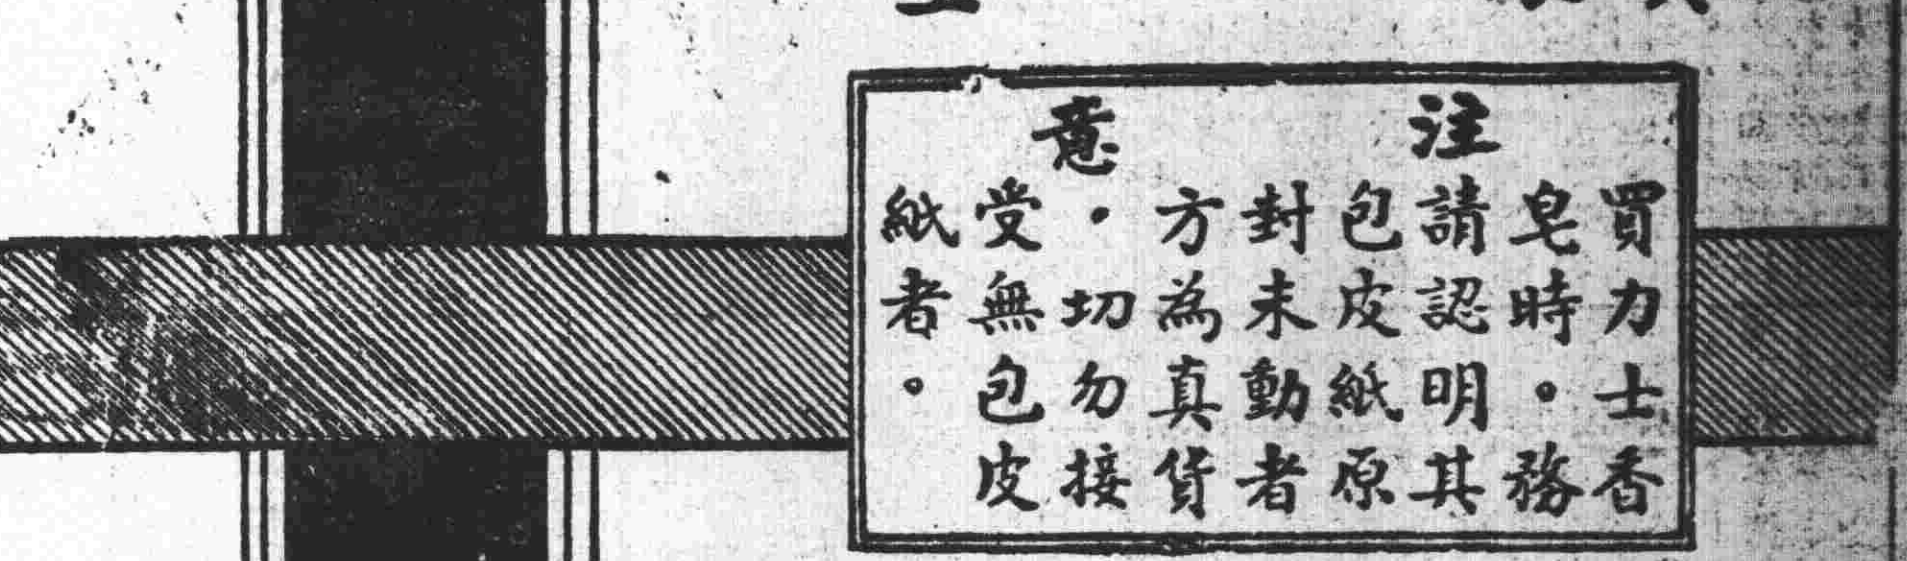 注意
買力士香
皂時。務
請認明其
包皮紙原
封未動者
方為真貨
。切勿接
受無包皮
紙者。